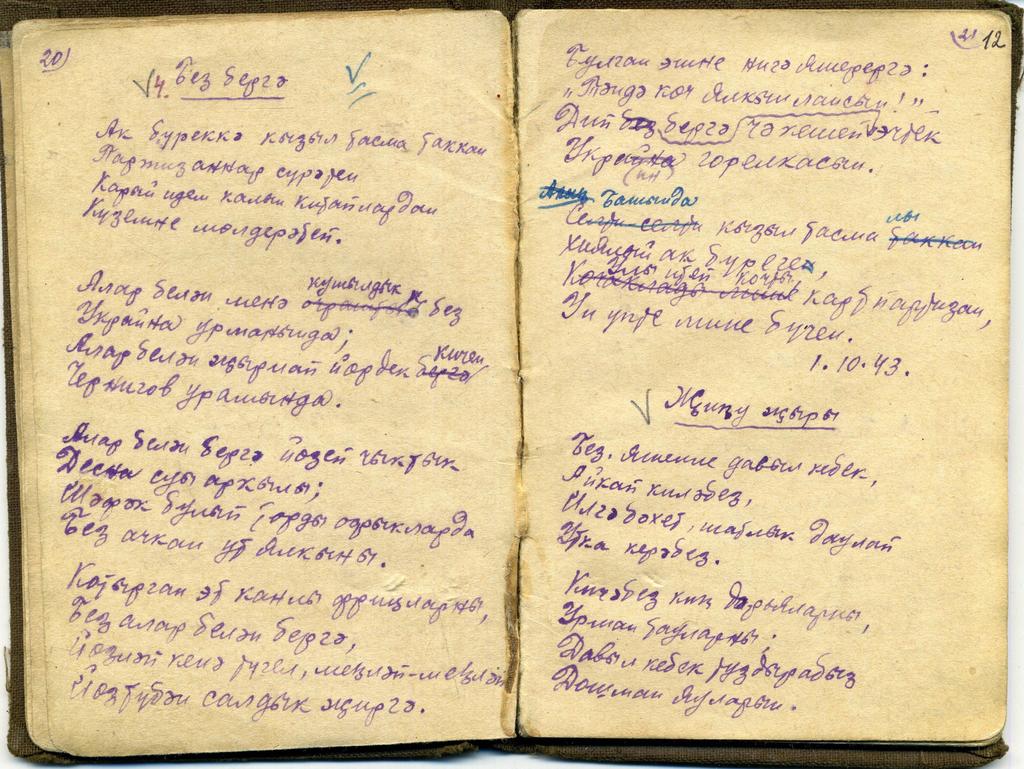 20)
4. Без бергә
Ак бүреккә кызыл тасма таккан
Партизаннар сурәтен
Карый идем калын китаплардан
Күземне мөлдерәтеп.
Алар белән менә кушылдык без
Украйна урманында;
Алар белән җырлап йөрдек кичен
Чернигов урамында.
Алар белән бергә йөзеп чыктык
Десна суы аркылы;
Шәфәк булып торды офыкларда
Без ачкан ут ялкыны.
Котырган эт канлы фрицларны,
Без алар белән бергә,
Йөзләп кенә түгел, меңләп-меңләп
Йөзтүбән салдык җиргә.
21 12
Булган эшне нигә яшерергә:
„Тәндә көч ялкынлансын!"
Дип без бергә чәкешеп эчтек
Украин горелкасын.
Башында
кызыл тасмалы
ак бүреге,
кочты карт партизан,
Ул үпте мине бүген.
1.10.43.
Җиңү җыры
Без, яшенле давыл кебек,
Айкап киләбез,
Илгә бәхет, шатлык даулап
Утка керәбез.
Кичәбез киң дәрьяларны,
Урман тауларны.
Давыл кебек туздырабыз
Дошман яуларын.